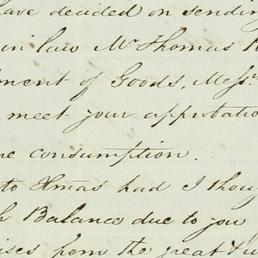 have decided on sending
in law Mr Thomas
ment of Goods, Messrs
meet your approbation
consumption.
to Xmas had I thoug
Balance due to you
ises from the great &